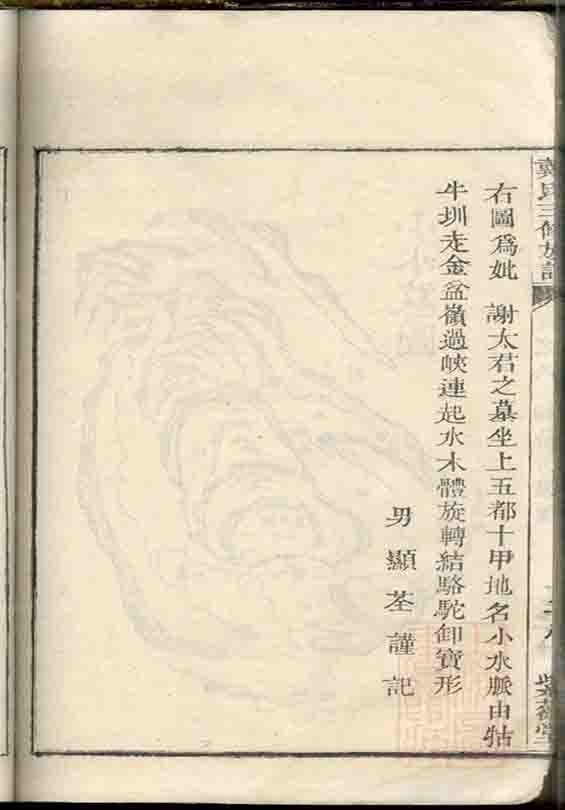 右圖爲妣 謝太君之墓坐上五都十甲地名小水脈由牯
牛圳走金盆嶺過峽連起水木體旋轉結駱駝卸寶形
男顯荃謹記